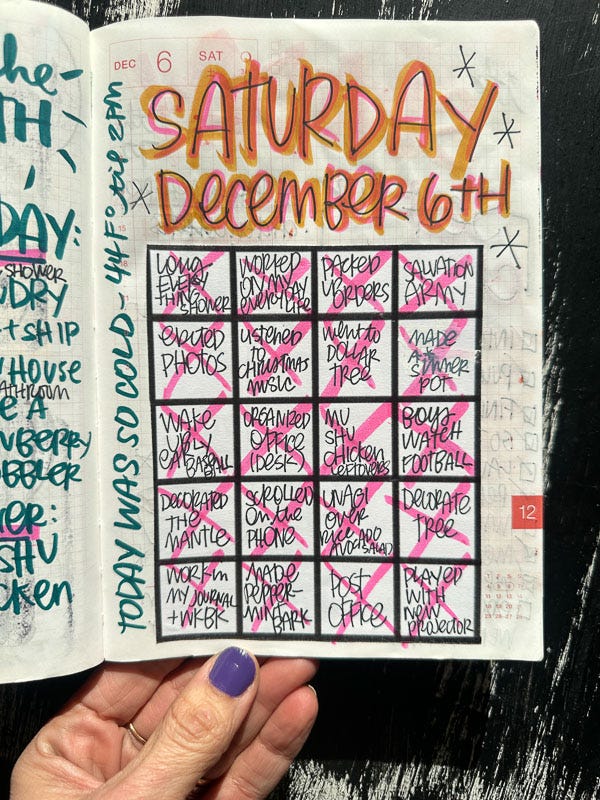 he-
TH
DAY:
SHOWER
DRY
+ SHIP
HOUSE
ATHROOM
E A
WBERRY
BBLER
ER:
SHU
CKEN
TODAY WAS SO COLD - 44F° till 2PM
DEC 6 SAT
SATURDAY
DECEMBER 6TH
LONG
EVERY
THING
SHOWER
WORKED
ON MY
EVERYDAY
LIFE
PACKED
UP
ORDERS
SALVATION
ARMY
EDITED
PHOTOS
LISTENED
TO
CHRISTMAS
MUSIC
WENT TO
DOLLAR
TREE
MADE
A
SIMMER
POT
WAKE
UP
EARLY
BASEBALL
ORGANIZED
OFFICE
(DESK)
MU
SHU
CHICKEN
LEFTOVERS
BOYS
WATCH
FOOTBALL
DECORATED
THE
MANTLE
SCROLLED
ON THE
PHONE
UNAGI
OVER
RICE
AVOCADO
SALAD
DECORATE
TREE
WORK IN
MY JOURNAL
+ WKBK
MADE
PEPPER-
MINT
BARK
POST
OFFICE
PLAYED
WITH
NEW
PROJECTOR
12